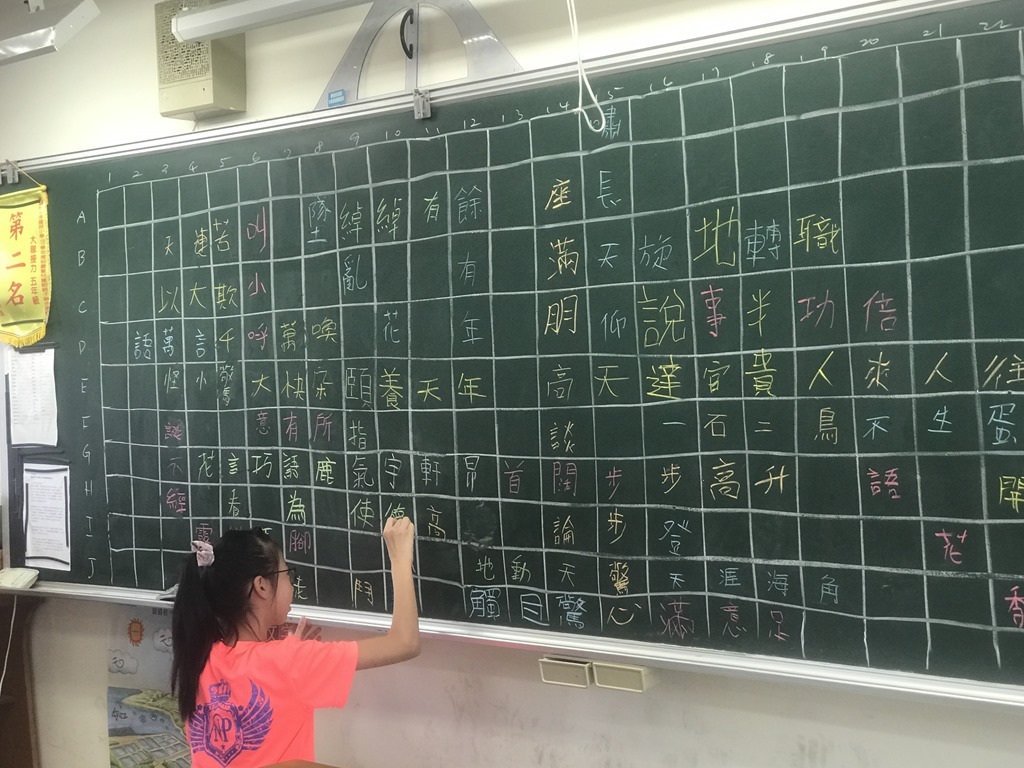 1 2 3 4 5 6 7 8 9 10 11 12 13 14 15 16 17 18 19 20 21 22
嘯
A 隊 綽 綽 有 餘 座 長
B 天 連 苦 叫 墜 亂 有 滿 天 旋 地 轉 職
C 以 大 欺 小 花 年 明 仰 說 事 半 功 倍
D 語 萬 言 千 呼 萬 喚
E 怪 小 驚 大 快 朵 頤 養 天 年 高 天 達 官 貴 人 來 人 往
F 談 意 有 所 指 談 一 石 二 鳥 不 生 蛋
G 不 花 言 巧 語 鹿 氣 宇 軒 昂 首 闊 步 步 高 升 語 開
H 經 看 為 使 高 論 步 登 花
I 腳
J 地 動 天 驚 天 涯 海 角 香
鬥 觸 目 驚 心 滿 意 足
第二名
大隊接力 五年級
NP